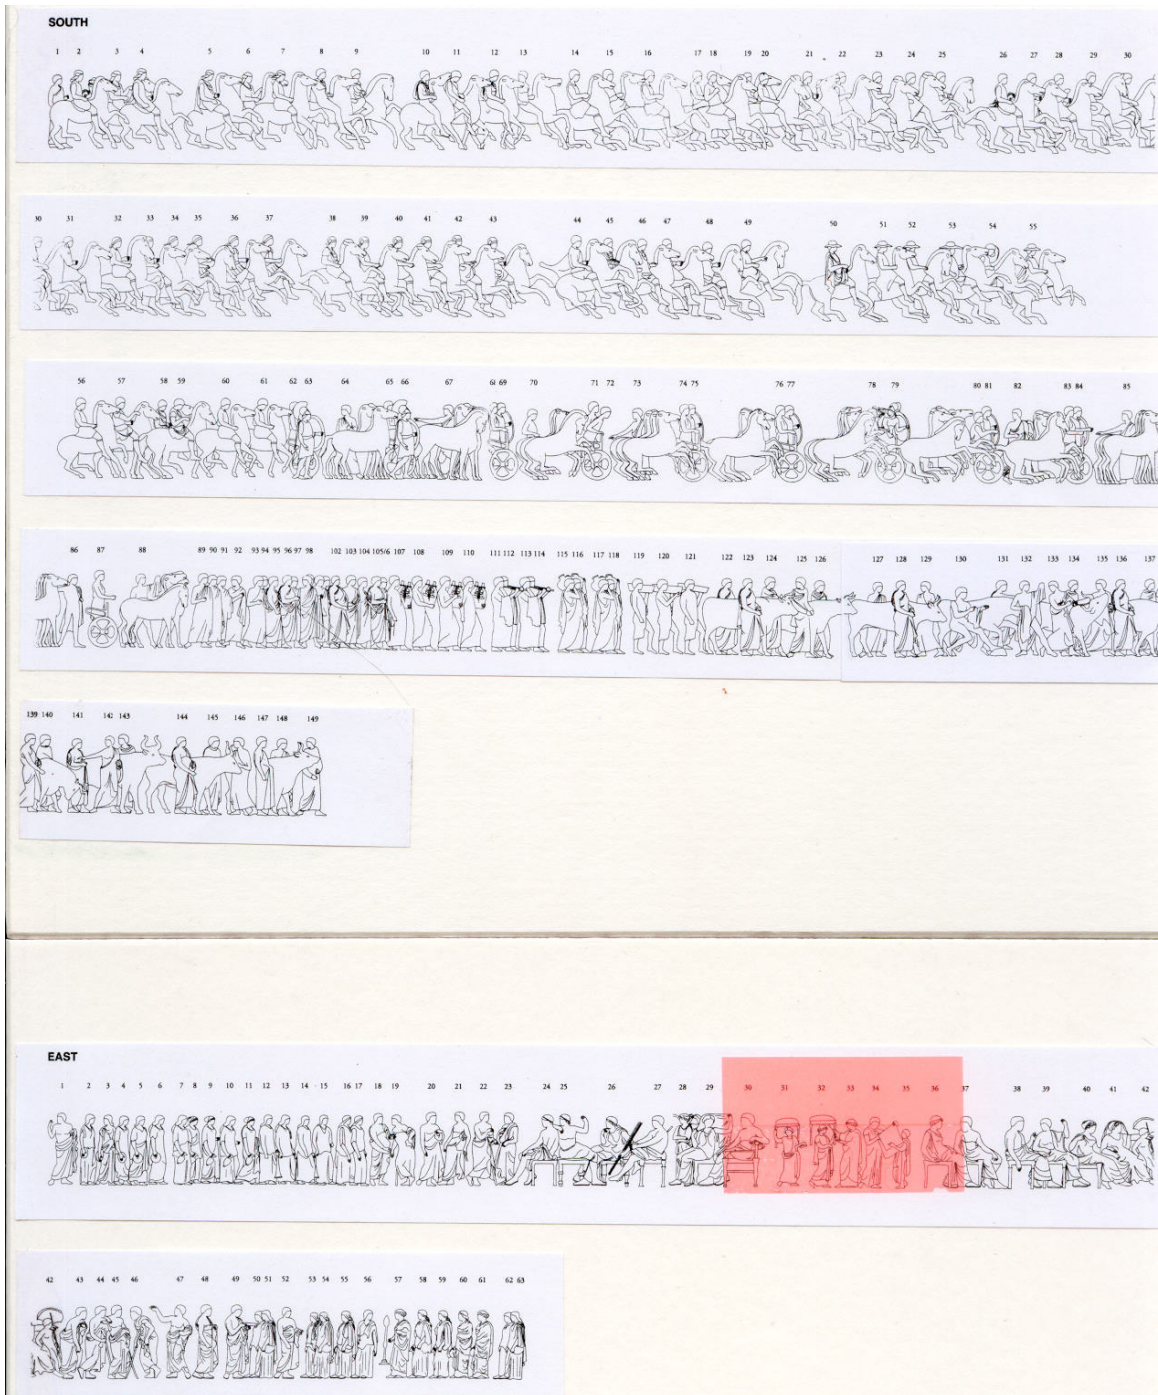 SOUTH
1 2 3 4 5 6 7 8 9 10 11 12 13 14 15 16 17 18 19 20 21 22 23 24 25 26 27 28 29 30
30 31 32 33 34 35 36 37 38 39 40 41 42 43 44 45 46 47 48 49 50 51 52 53 54 55
56 57 58 59 60 61 62 63 64 65 66 67 69 70 71 72 73 74 75 76 77 78 79 80 81 82 83 84 85
86 87 88 89 90 91 92 93 94 95 96 97 98 102 103 104 105/6 107 108 109 110 111 112 113 114 115 116 117 118 119 120 121 122 123 124 125 126 127 128 129 130 131 132 133 134 135 136 137
139 140 141 142 143 144 145 146 147 148 149
EAST
1 2 3 4 5 6 7 8 9 10 11 12 13 14 15 16 17 18 19 20 21 22 23 24 25 26 27 28 29 30 31 32 33 34 35 36 37 38 39 40 41 42
42 43 44 45 46 47 48 49 50 51 52 53 54 55 56 57 58 59 60 61 62 63